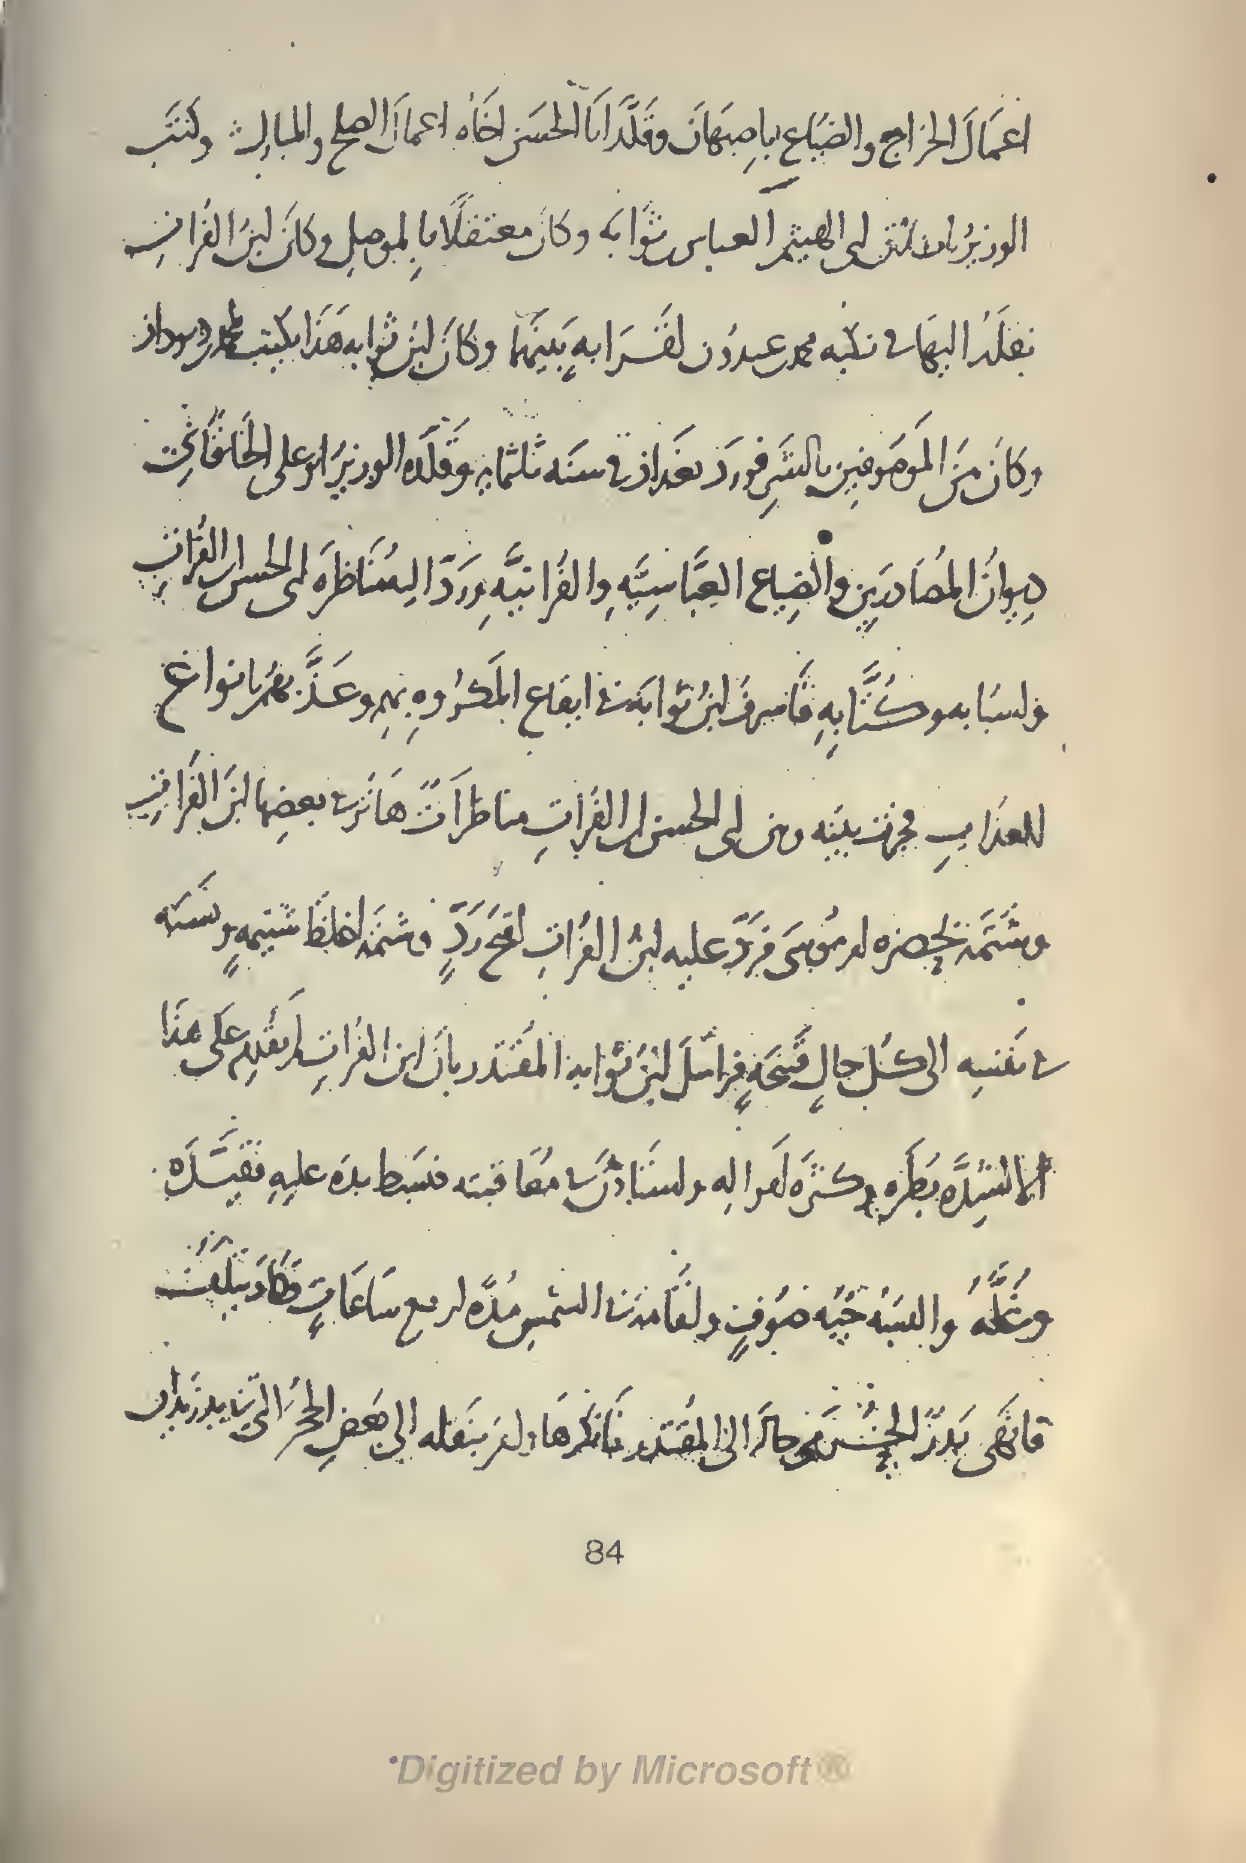 اعمَالَ الخراج والضيَاعِ باصبَهانَ وقَلَّدَ ابَا الحسَن اخَاهُ اعمالَ الصلح والمبارك وكتبَ
الوزيرُ ابى الهيثم العباس ثَوَابه وكان معتقلاً بالموصل وكانَ ابنُ الفُراتِ
يقلدُ اليهَا فى نكبه محمد عبدون لقَرَابهٍ بَينَهُمَا وكانَ ابن ثوابه هَذا يكتب
وكانَ مِنَ المَوصُوفين بالشرِ فورَدَ بغدَاذ فى سنَه ثلثمايه وقَلَّدَه الوزيرُ ابو على الخَاقَانى
ديوانَ المصَادَرين والضِياع العبَّاسيَّهِ والفُراتيَّه ورَدَّ اليه مُنَاظرَه ابى الحسن ابن الفُراتِ
واسبَابه وكُتَّابِهِ فاسرفَ ابنُ ثوابَه فى ايقاع المَكرُوهِ بهم وعَذَّبهُم بانواعِ
العذابِ فجرت بينه وبين ابى الحسن ابن الفُراتِ مناظرَاتٌ فى بعضها ابنَ الفراتِ
وشَتَمَه بحضره ام مُوسَى فرَدَّ عليه ابنُ الفُراتِ اقبَح رَدٍّ وشتمَه اغلظَ شتيمهٍ ونسَبَه
فى نفسه الى كُل حالٍ قبيحَهٍ فراسَلَ ابنُ ثوابه المُقتَدر بانَّ ابن الفُراتِ لم يقدِم على هذا
الا لشِدَّه بَطَرِه وكثرَه امواله واستَاذَنَ فى مُعَاقبته فبَسَط يدَه عليهِ فقيَّدَه
وغلَّهُ والبسَهُ جُبَّه صُوفٍ واقَامَه فى الشمسِ مُدَّه اربع سَاعَاتٍ فكادَ يتلفُ
فانهَى بَدرٌ الحُرَمى حالَه الى المُقتدر فانكرهَا وامر بنقله الى بَعضِ الحُجَر التى فى يد زيدان
84
Digitized by Microsoft®